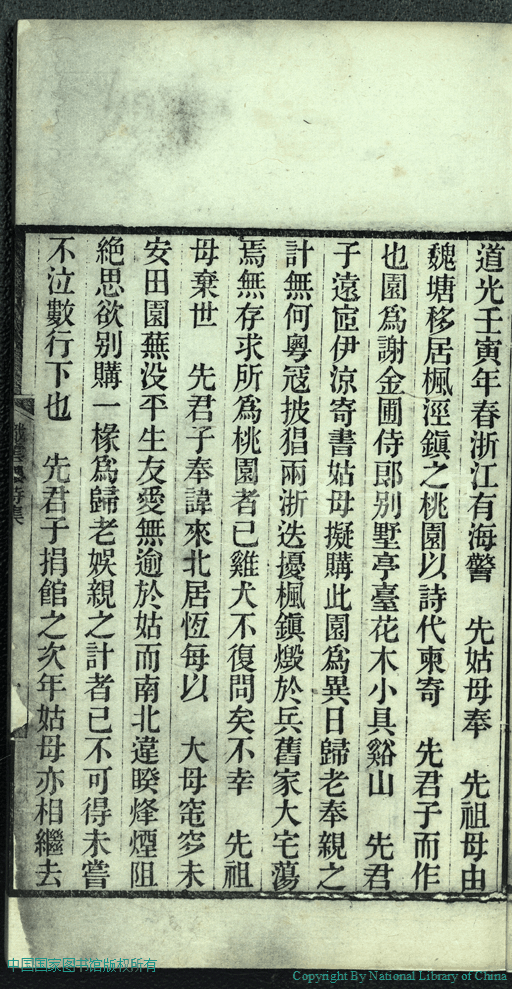 道光壬寅年春浙江有海警　先姑母奉　先祖母由
魏塘移居楓涇鎮之桃園以詩代柬寄　先君子而作
也園為謝金圃侍郎别墅亭臺花木小具谿山　先君
子遠宦伊涼寄書姑母擬購此園為異日歸老奉親之
計無何粵寇披猖兩浙迭擾楓鎮燬於兵舊家大宅蕩
焉無存求所為桃園者已雞犬不復問矣不幸　先祖
母棄世　先君子奉諱來北居恆每以　大母窀穸未
安田園蕪没平生友愛無逾於姑而南北違暌烽煙阻
絶思欲别購一椽為歸老娛親之計者已不可得未嘗
不泣數行下也　先君子捐館之次年姑母亦相繼去
中国国家图书馆版权所有
Copyright By National Library of China